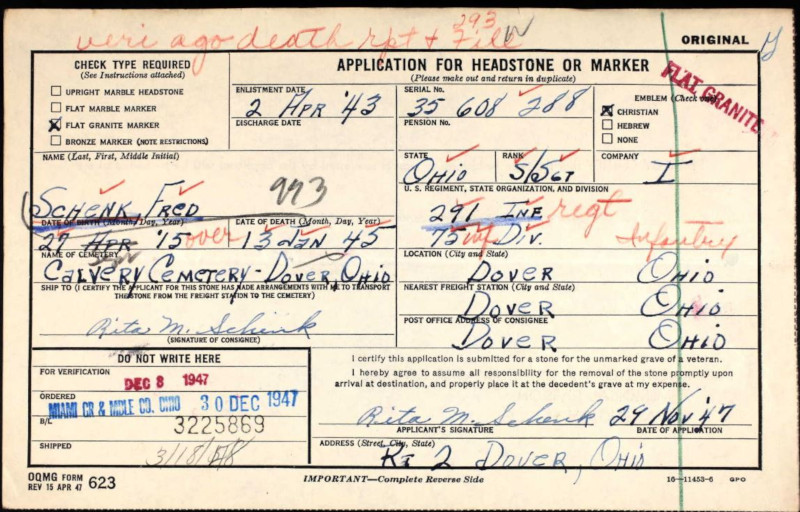 veri ago death rpt + File
293
ORIGINAL
CHECK TYPE REQUIRED
(See Instructions attached)
UPRIGHT MARBLE HEADSTONE
FLAT MARBLE MARKER
X FLAT GRANITE MARKER
BRONZE MARKER (NOTE RESTRICTIONS)
APPLICATION FOR HEADSTONE OR MARKER
(Please make out and return in duplicate)
ENLISTMENT DATE
2 APR '43
DISCHARGE DATE
SERIAL No.
35 608 288
PENSION No.
EMBLEM (Check one)
X CHRISTIAN
HEBREW
NONE
FLAT GRANITE
NAME (Last, First, Middle Initial)
SCHENK, FRED
993
STATE
OHIO
RANK
S/SGT
COMPANY
I
U. S. REGIMENT, STATE ORGANIZATION, AND DIVISION
291 INF regt
75 inf DIV. Infantry
DATE OF BIRTH (Month, Day, Year)
27 APR '15 over
DATE OF DEATH (Month, Day, Year)
13 JAN 45
NAME OF CEMETERY
CALVERY CEMETERY - DOVER, OHIO
LOCATION (City and State)
DOVER OHIO
SHIP TO (I CERTIFY THE APPLICANT FOR THIS STONE HAS MADE ARRANGEMENTS WITH ME TO TRANSPORT
THE STONE FROM THE FREIGHT STATION TO THE CEMETERY)
NEAREST FREIGHT STATION (City and State)
DOVER OHIO
Rita M. Schenk
(SIGNATURE OF CONSIGNEE)
POST OFFICE ADDRESS OF CONSIGNEE
DOVER OHIO
DO NOT WRITE HERE
FOR VERIFICATION
DEC 8 1947
ORDERED
MIAMI GR & MBLE CO. OHIO 30 DEC 1947
B/L
3225869
SHIPPED
3/18/48
I certify this application is submitted for a stone for the unmarked grave of a veteran.
I hereby agree to assume all responsibility for the removal of the stone promptly upon
arrival at destination, and properly place it at the decedent's grave at my expense.
Rita M. Schenk 29 Nov '47
APPLICANT'S SIGNATURE DATE OF APPLICATION
ADDRESS (Street, City, State)
Rt 2 DOVER, OHIO
OQMG FORM
REV 15 APR 47 623
IMPORTANT—Complete Reverse Side
16—11453-6 GPO